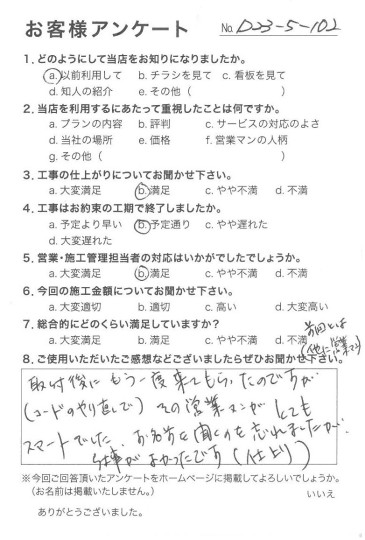 お客様アンケート No. D23-5-102
1. どのようにして当店をお知りになりましたか。
a. 以前利用して b. チラシを見て c. 看板を見て
d. 知人の紹介 e. その他( )
2. 当店を利用するにあたって重視したことは何ですか。
a. プランの内容 b. 評判 c. サービスの対応のよさ
d. 当社の場所 e. 価格 f. 営業マンの人柄
g. その他( )
3. 工事の仕上がりについてお聞かせ下さい。
a. 大変満足 b. 満足 c. やや不満 d. 不満
4. 工事はお約束の工期で終了しましたか。
a. 予定より早い b. 予定通り c. やや遅れた
d. 大変遅れた
5. 営業・施工管理担当者の対応はいかがでしたでしょうか。
a. 大変満足 b. 満足 c. やや不満 d. 不満
6. 今回の施工金額についてお聞かせ下さい。
a. 大変適切 b. 適切 c. 高い d. 大変高い
7. 総合的にどのくらい満足していますか?
a. 大変満足 b. 満足 c. やや不満 d. 不満
前回とは
(他に営業マン)
8. ご使用いただいたご感想などございましたらぜひお聞かせ下さい。
取付後にもう一度来てもらったのですが
(コードのやり直しで) その営業マンがとても
スマートでした. お名前を聞くのを忘れましたが.
仕事がよかったです (仕上り)
※今回ご回答頂いたアンケートをホームページに掲載してよろしいでしょうか。
(お名前は掲載いたしません。) いいえ
ありがとうございました。